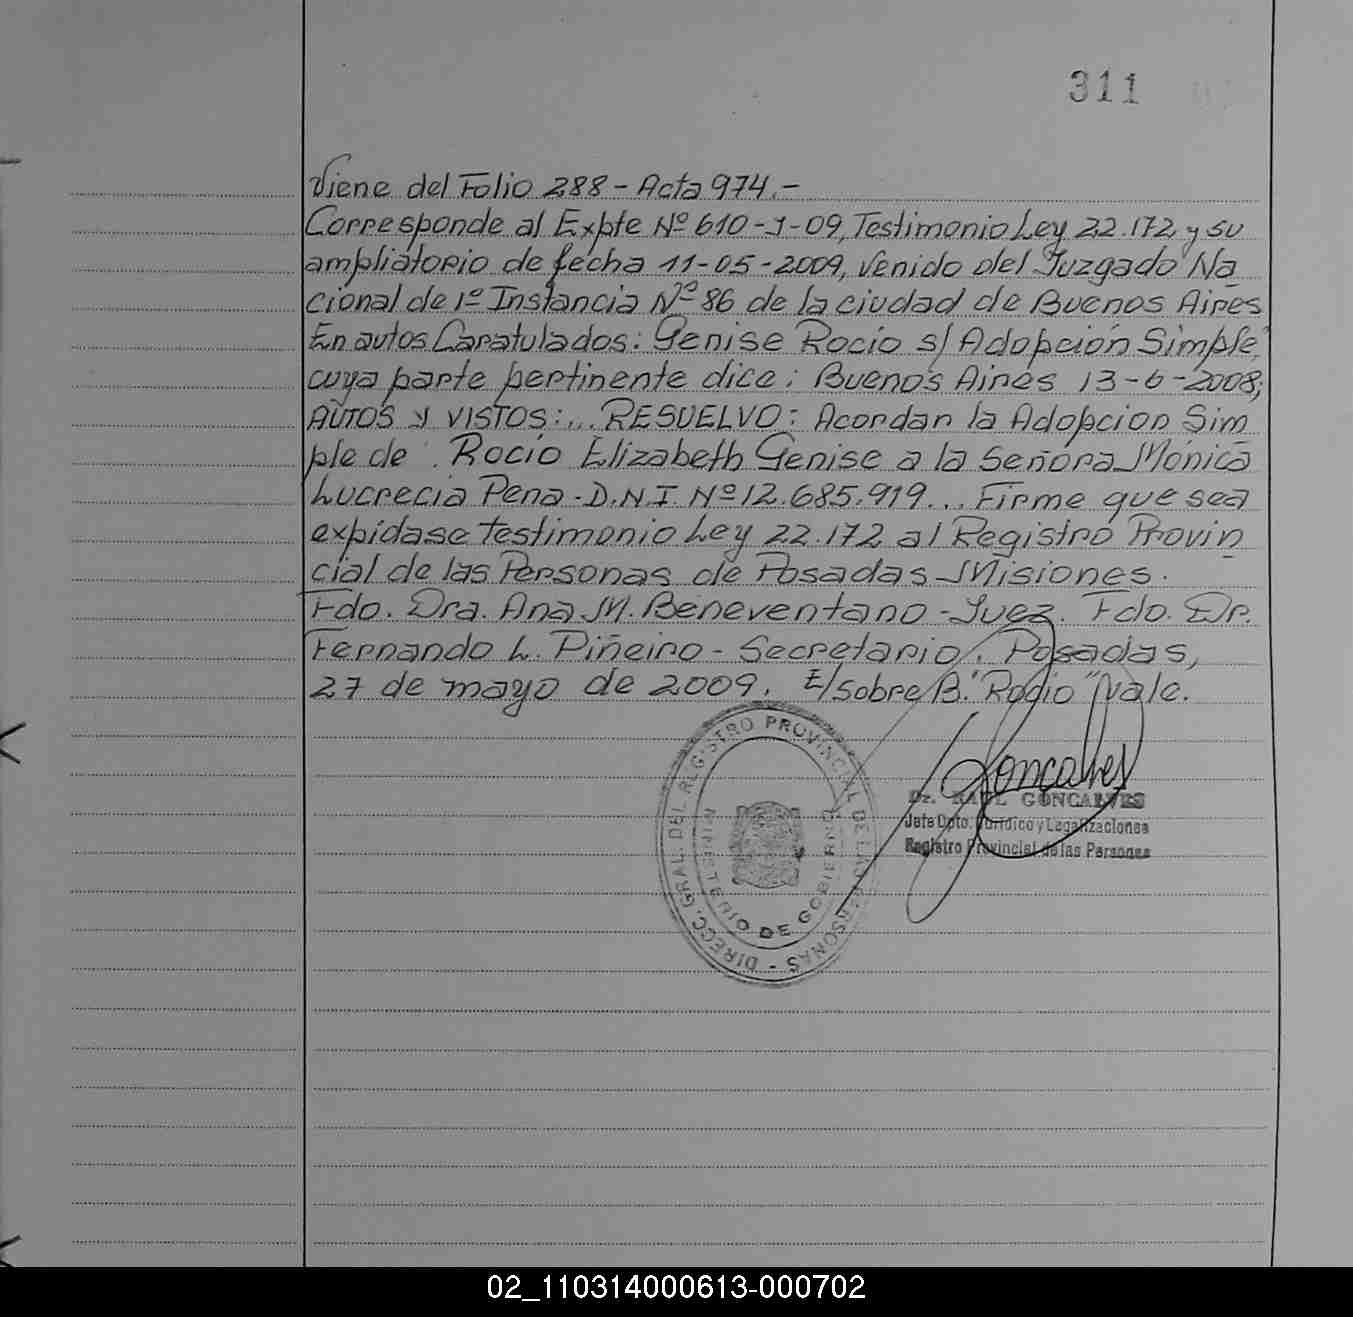 311
Viene del Folio 288 - Acta 974.-
Corresponde al Expte Nº 610-J-09, Testimonio Ley 22.172 y su
ampliatorio de fecha 11-05-2009, venido del Juzgado Na
cional de 1º Instancia Nº 86 de la ciudad de Buenos Aires
En autos Caratulados: Genise Rocio s/ Adopción Simple"
cuya parte pertinente dice: Buenos Aires 13-6-2008;
AUTOS y VISTOS:... RESUELVO: Acordar la Adopcion Sim
ple de Rocio Elizabeth Genise a la Señora Mónica
Lucrecia Pena - D.N.I. Nº 12.685.919... Firme que sea
expidase testimonio Ley 22.172 al Registro Provin
cial de las Personas de Posadas Misiones.
Fdo. Dra. Ana M. Beneventano - Juez. Fdo. Dr.
Fernando L. Piñeiro - Secretario. Posadas,
27 de mayo de 2009. E/sobre B. "Rocio" Vale.
Goncalves
Dr. RAUL GONCALVES
Jefe Dpto. Jurídico y Legalizaciones
Registro Provincial de las Personas
DIRECC. GRAL. DEL REGISTRO PROVINCIAL DE LAS PERSONAS -
MINISTERIO DE GOBIERNO
02_110314000613-000702